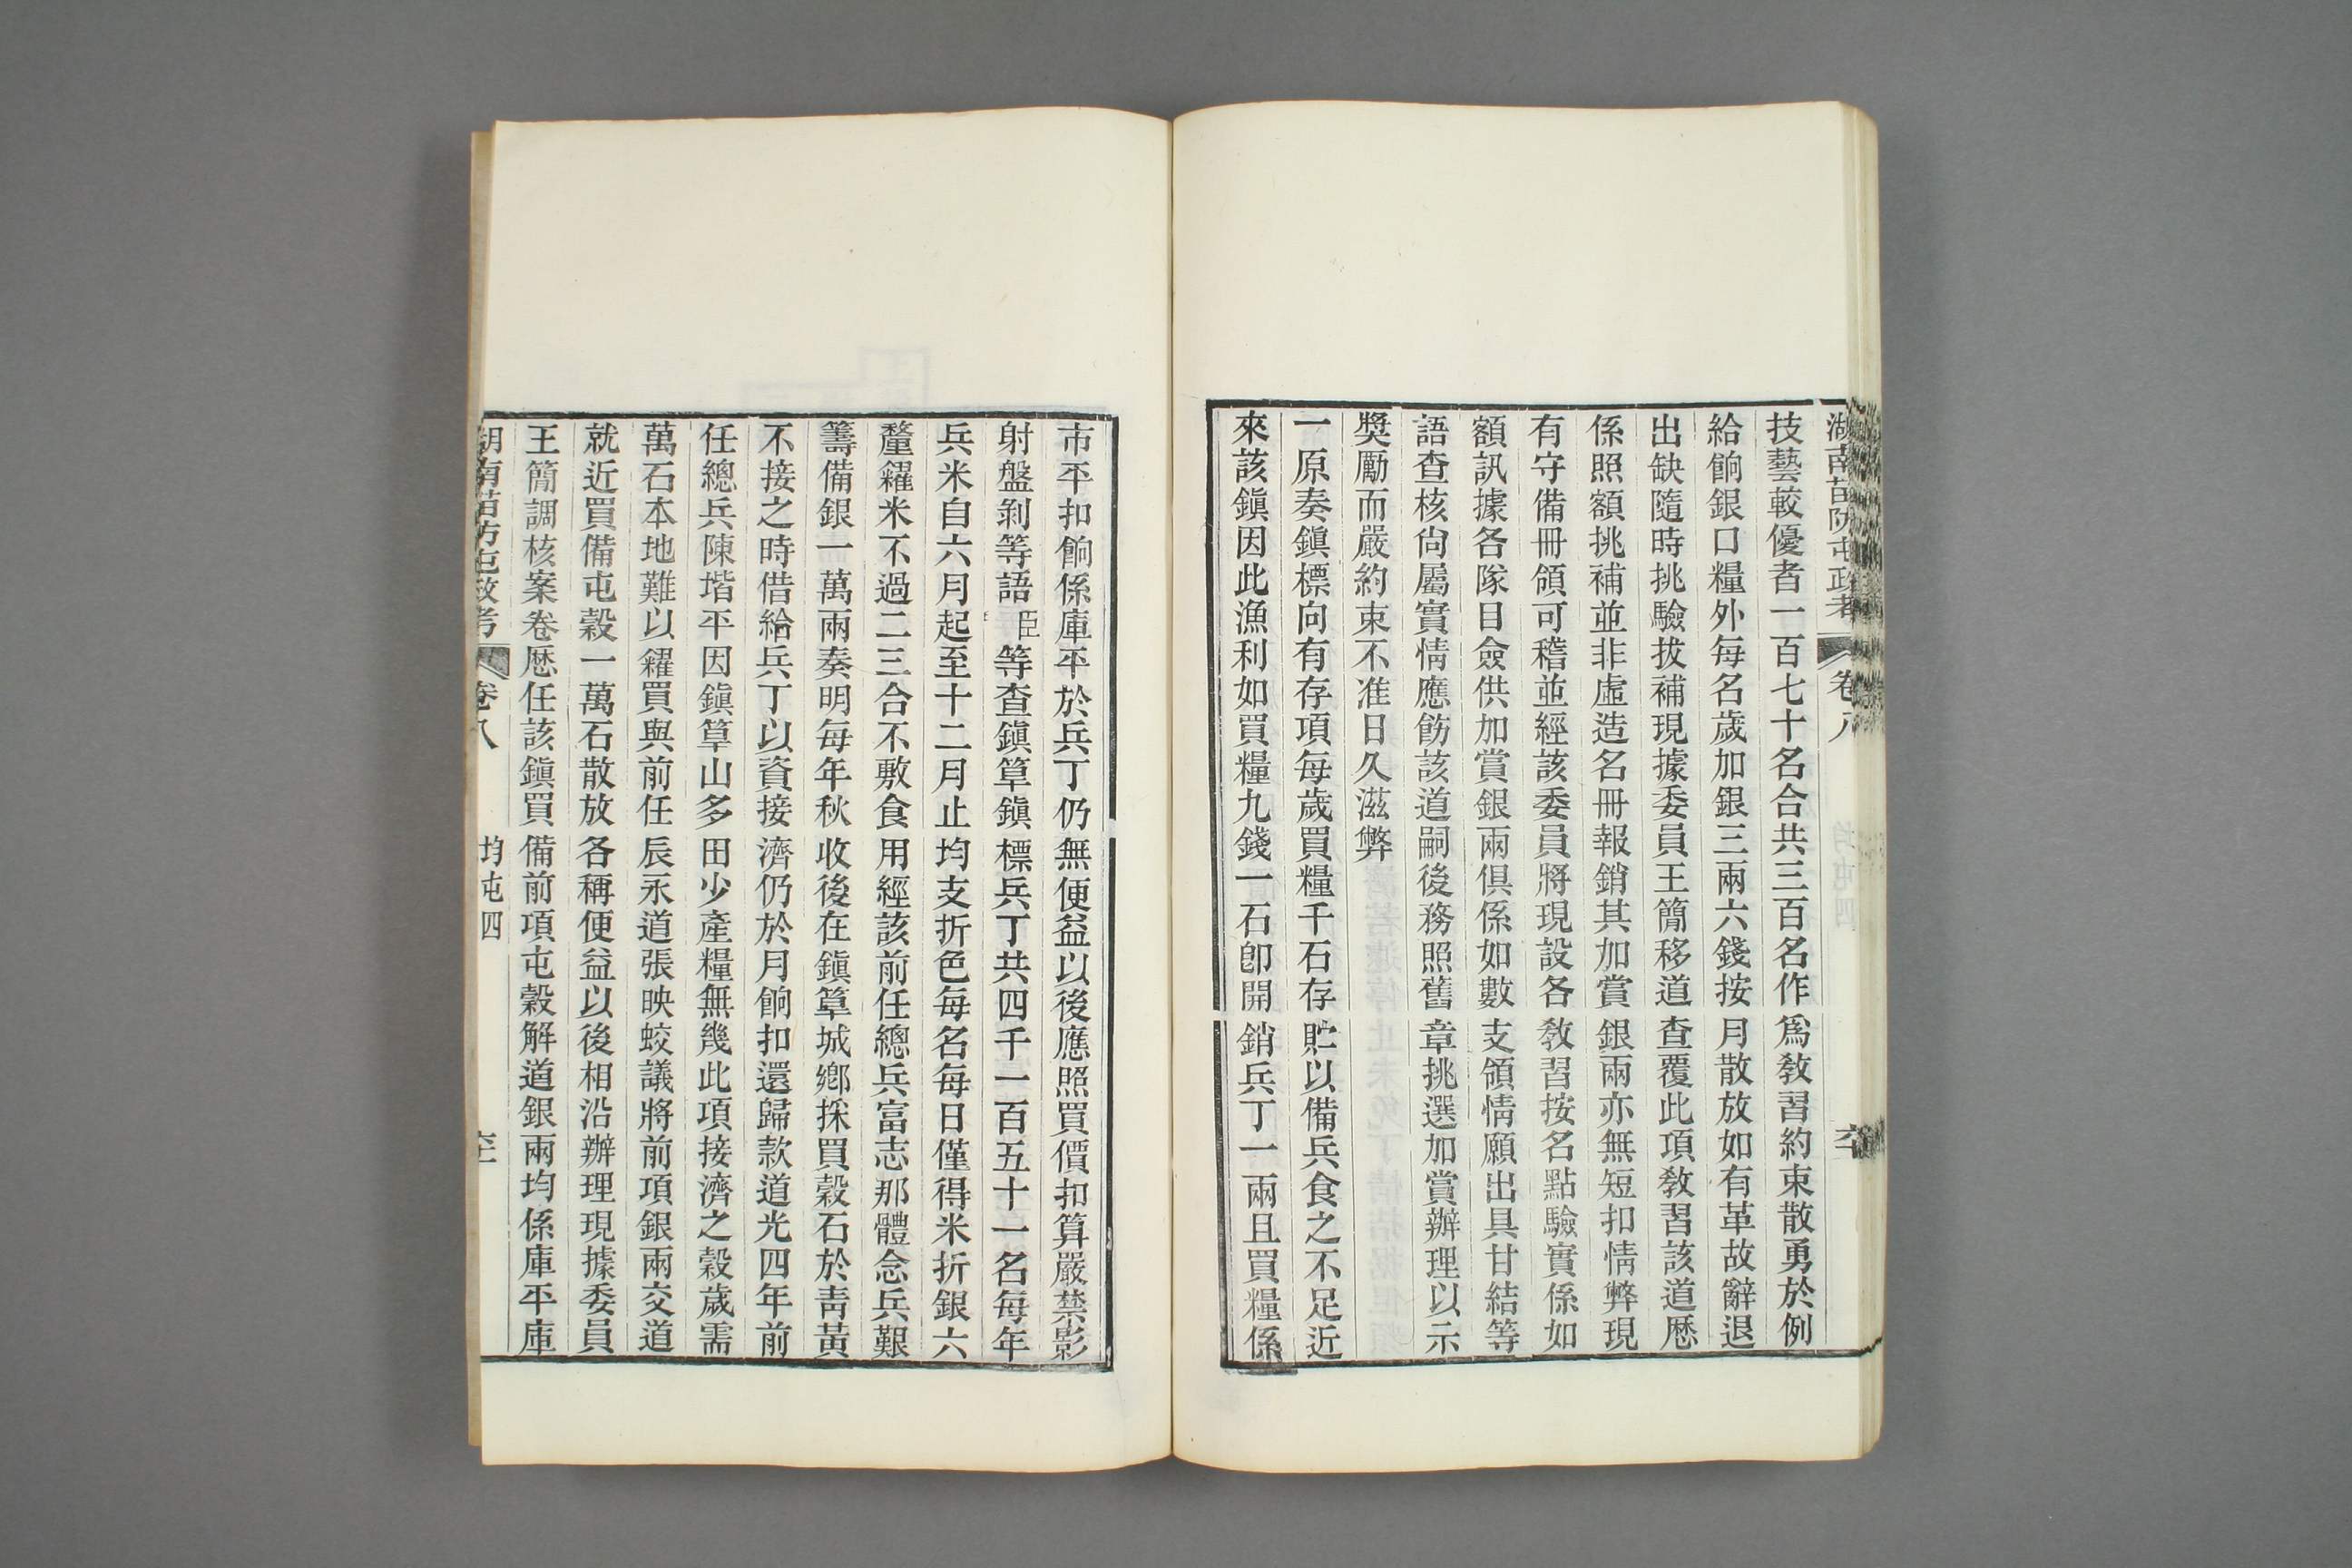 湖南苗防屯政考 卷八
技藝較優者一百七十名合共三百名作爲敎習約束散勇於例
給餉銀口糧外每名歲加銀三兩六錢按月散放如有革故辭退
出缺隨時挑驗拔補現據委員王簡移道查覆此項敎習該道歷
係照額挑補並非虛造名冊報銷其加賞銀兩亦無短扣情弊現
有守備冊領可稽並經該委員將現設各敎習按名點驗實係如
額訊據各隊目僉供加賞銀兩俱係如數支領情願出具甘結等
語查核尙屬實情應飭該道嗣後務照舊章挑選加賞辦理以示
獎勵而嚴約束不准日久滋弊
一原奏鎭標向有存項每歲買糧千石存貯以備兵食之不足近
來該鎭因此漁利如買糧九錢一石卽開銷兵丁一兩且買糧係
市平扣餉係庫平於兵丁仍無便益以後應照買價扣算嚴禁影
射盤剝等語臣等查鎭筸鎭標兵丁共四千一百五十一名每年
兵米自六月起至十二月止均支折色每名每日僅得米折銀六
釐糴米不過二三合不敷食用經該前任總兵富志那體念兵艱
籌備銀一萬兩奏明每年秋收後在鎭筸城鄉採買穀石於靑黃
不接之時借給兵丁以資接濟仍於月餉扣還歸款道光四年前
任總兵陳堦平因鎭筸山多田少產糧無幾此項接濟之穀歲需
萬石本地難以糴買與前任辰永道張映蛟議將前項銀兩交道
就近買備屯穀一萬石散放各稱便益以後相沿辦理現據委員
王簡調核案卷歷任該鎭買備前項屯穀解道銀兩均係庫平庫
湖南苗防屯政考 卷八 均屯四